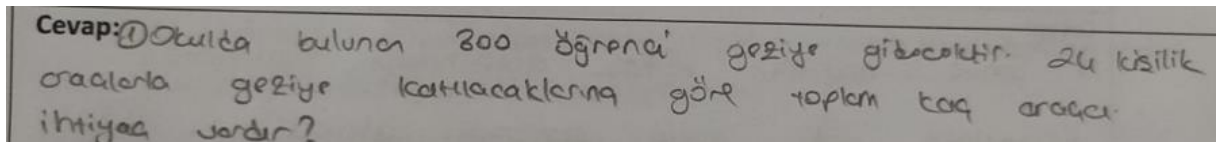 Cevap: ① Okulda bulunan 300 öğrenci geziye gidecektir. 24 kişilik
araçlarla geziye katılacaklarına göre toplam kaç araca
ihtiyaç vardır?